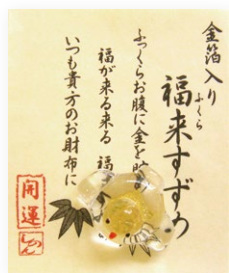 金箔入り
ふくら
福来すずめ
ふっくらお腹に金を貯め
福が来る来る 福
いつも貴方のお財布に
開運